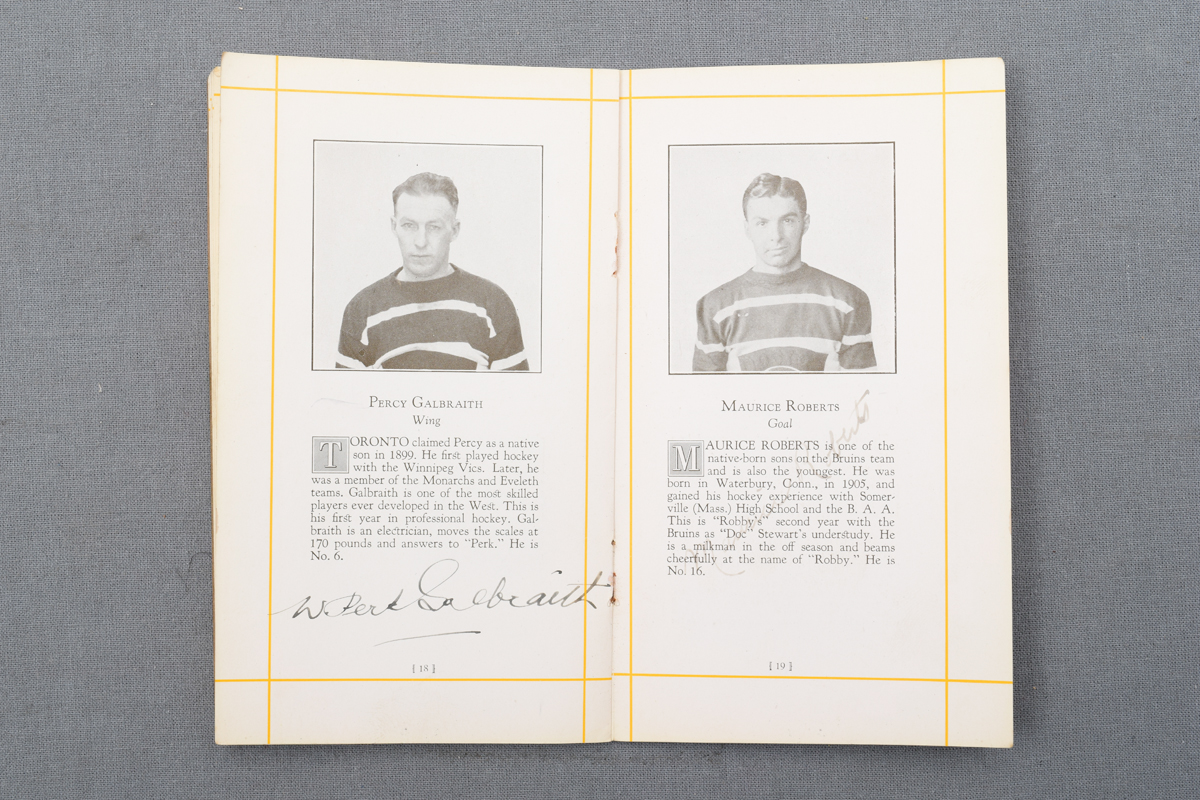 PERCY GALBRAITH
Wing
TORONTO claimed Percy as a native
son in 1899. He first played hockey
with the Winnipeg Vics. Later, he
was a member of the Monarchs and Eveleth
teams. Galbraith is one of the most skilled
players ever developed in the West. This is
his first year in professional hockey. Gal-
braith is an electrician, moves the scales at
170 pounds and answers to "Perk." He is
No. 6.
W. Perk Galbraith
[18]
MAURICE ROBERTS
Goal
MAURICE ROBERTS is one of the
native-born sons on the Bruins team
and is also the youngest. He was
born in Waterbury, Conn., in 1905, and
gained his hockey experience with Somer-
ville (Mass.) High School and the B. A. A.
This is "Robby's" second year with the
Bruins as "Doc" Stewart's understudy. He
is a milkman in the off season and beams
cheerfully at the name of "Robby." He is
No. 16.
[19]